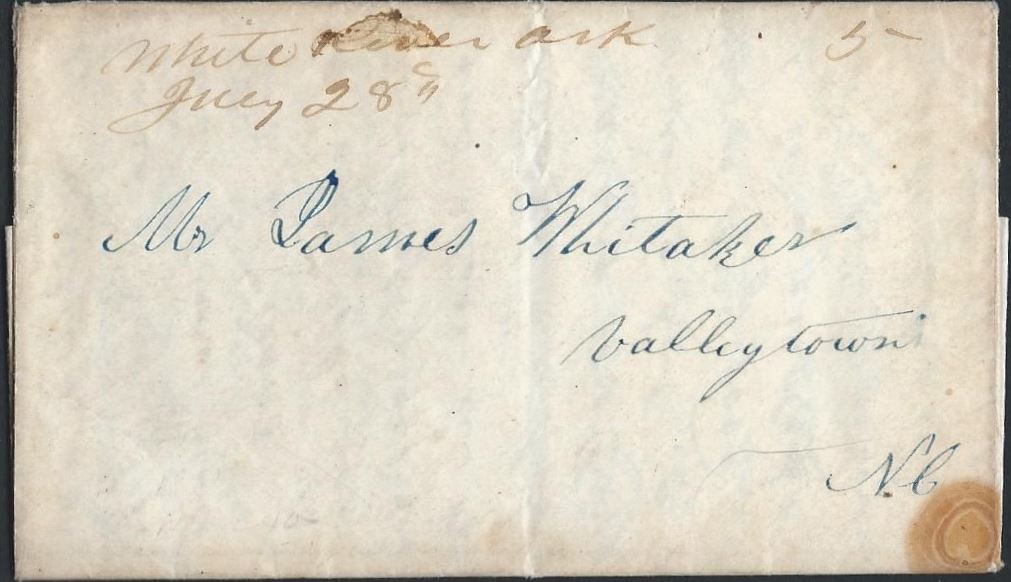 White River ark 5
July 28th
Mr James Whitaker
Valleytown
NC